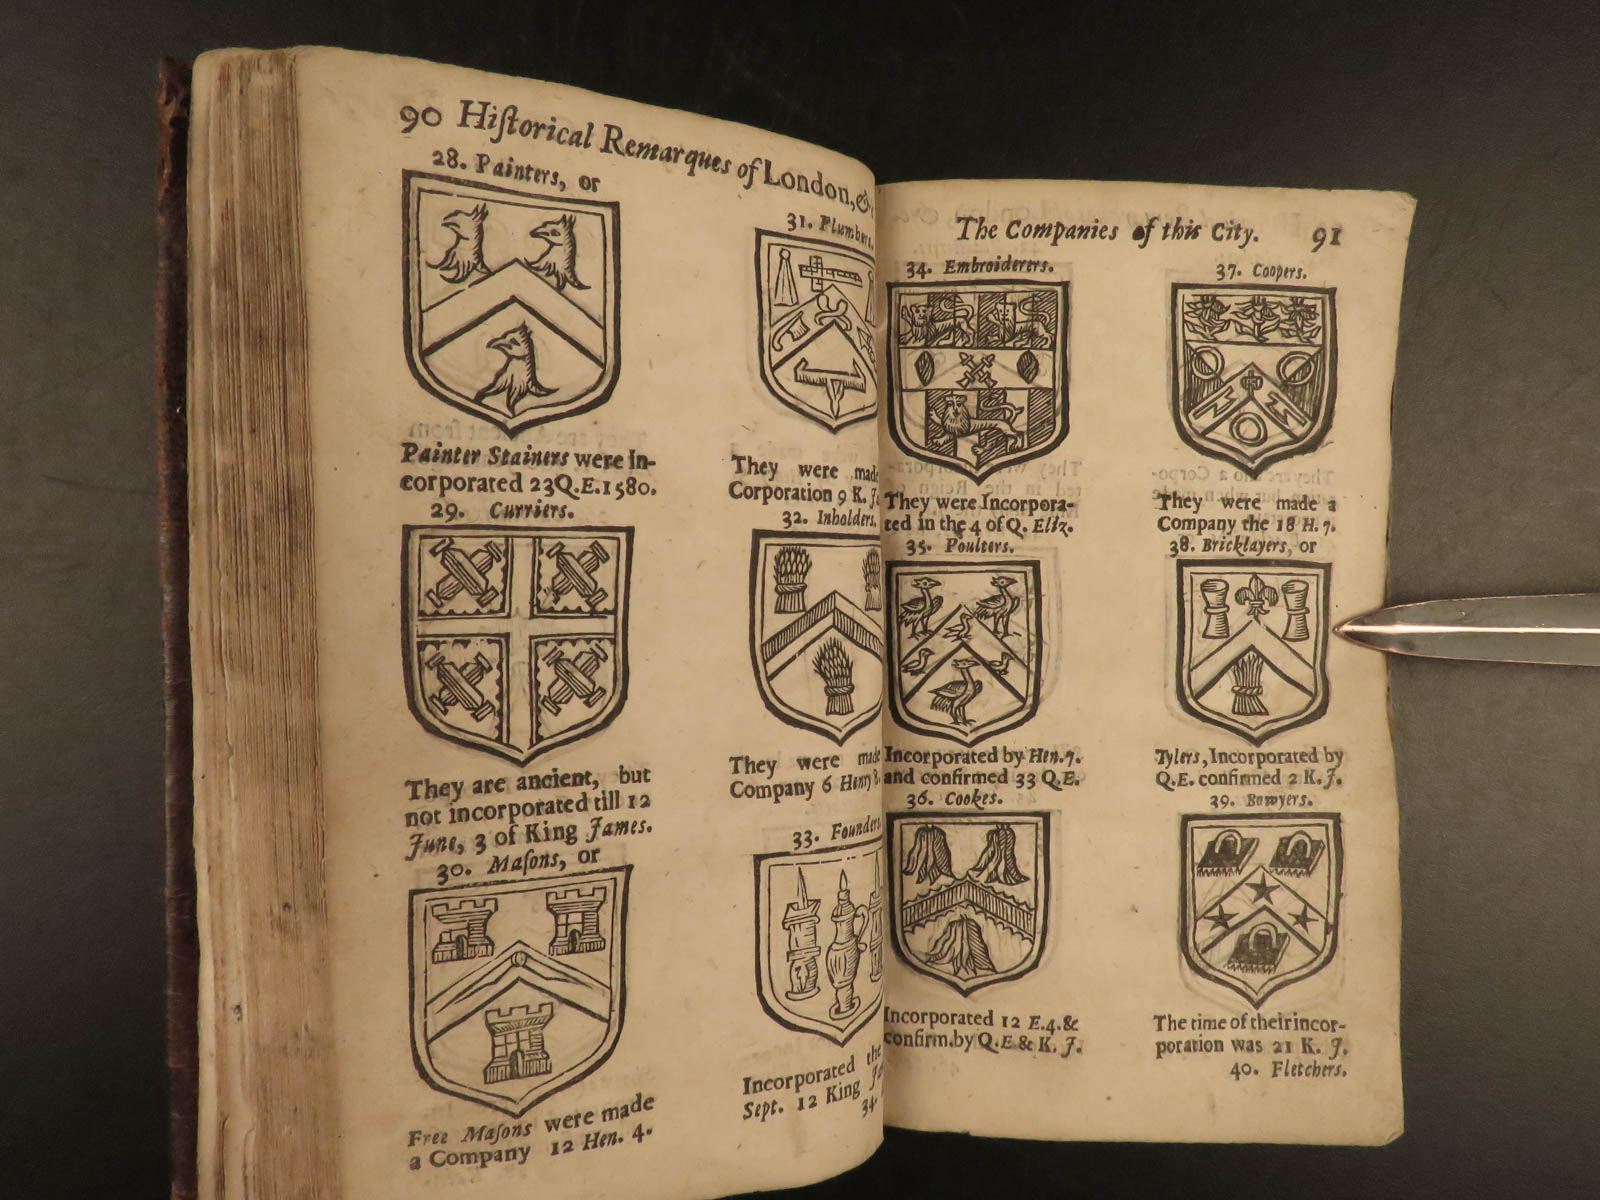 90 Hiſtorical Remarques of London, &
28. Painters, or
Painter Stainers were In-
corporated 23 Q. E. 1580.
29. Curriers.
They are ancient, but
not incorporated till 12
June, 3 of King James.
30. Maſons, or
Free Maſons were made
a Company 12 Hen. 4.
31. Plumbers.
They were made
Corporation 9 K. J.
32. Inholders.
They were made
Company 6 Henry 8.
33. Founders
Incorporated the
Sept. 12 King Ja
34.
The Companies of this City. 91
34. Embroiderers.
They were Incorpora-
ted in the 4 of Q. Eliz.
35. Poulters.
Incorporated by Hen. 7.
and confirmed 33 Q. E.
36. Cookes.
Incorporated 12 E. 4. &
confirm. by Q. E & K. J.
37. Coopers.
They were made a
Company the 18 H. 7.
38. Bricklayers, or
Tylers, Incorporated by
Q. E. confirmed 2 K. J.
39. Bowyers.
The time of their incor-
poration was 21 K. J.
40. Fletchers.